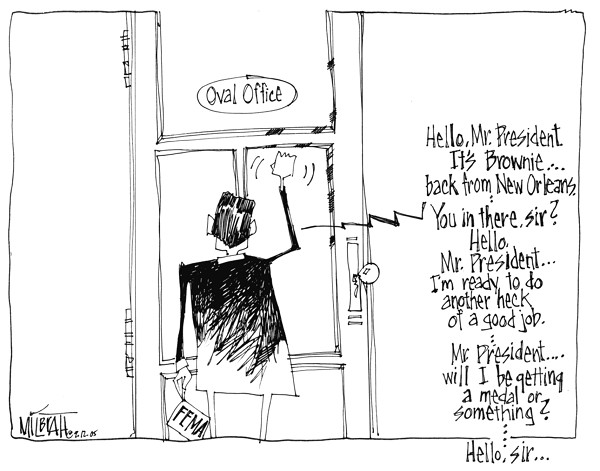 Oval Office
Hello, Mr. President
It's Brownie....
back from New Orleans.
:
You in there, sir?
Hello,
Mr. President...
I'm ready to do
another heck
of a good job.
:
Mr. President....
will I be getting
a medal or
something?
:
Hello, sir...
FEMA
MILBRATH 9.12.05